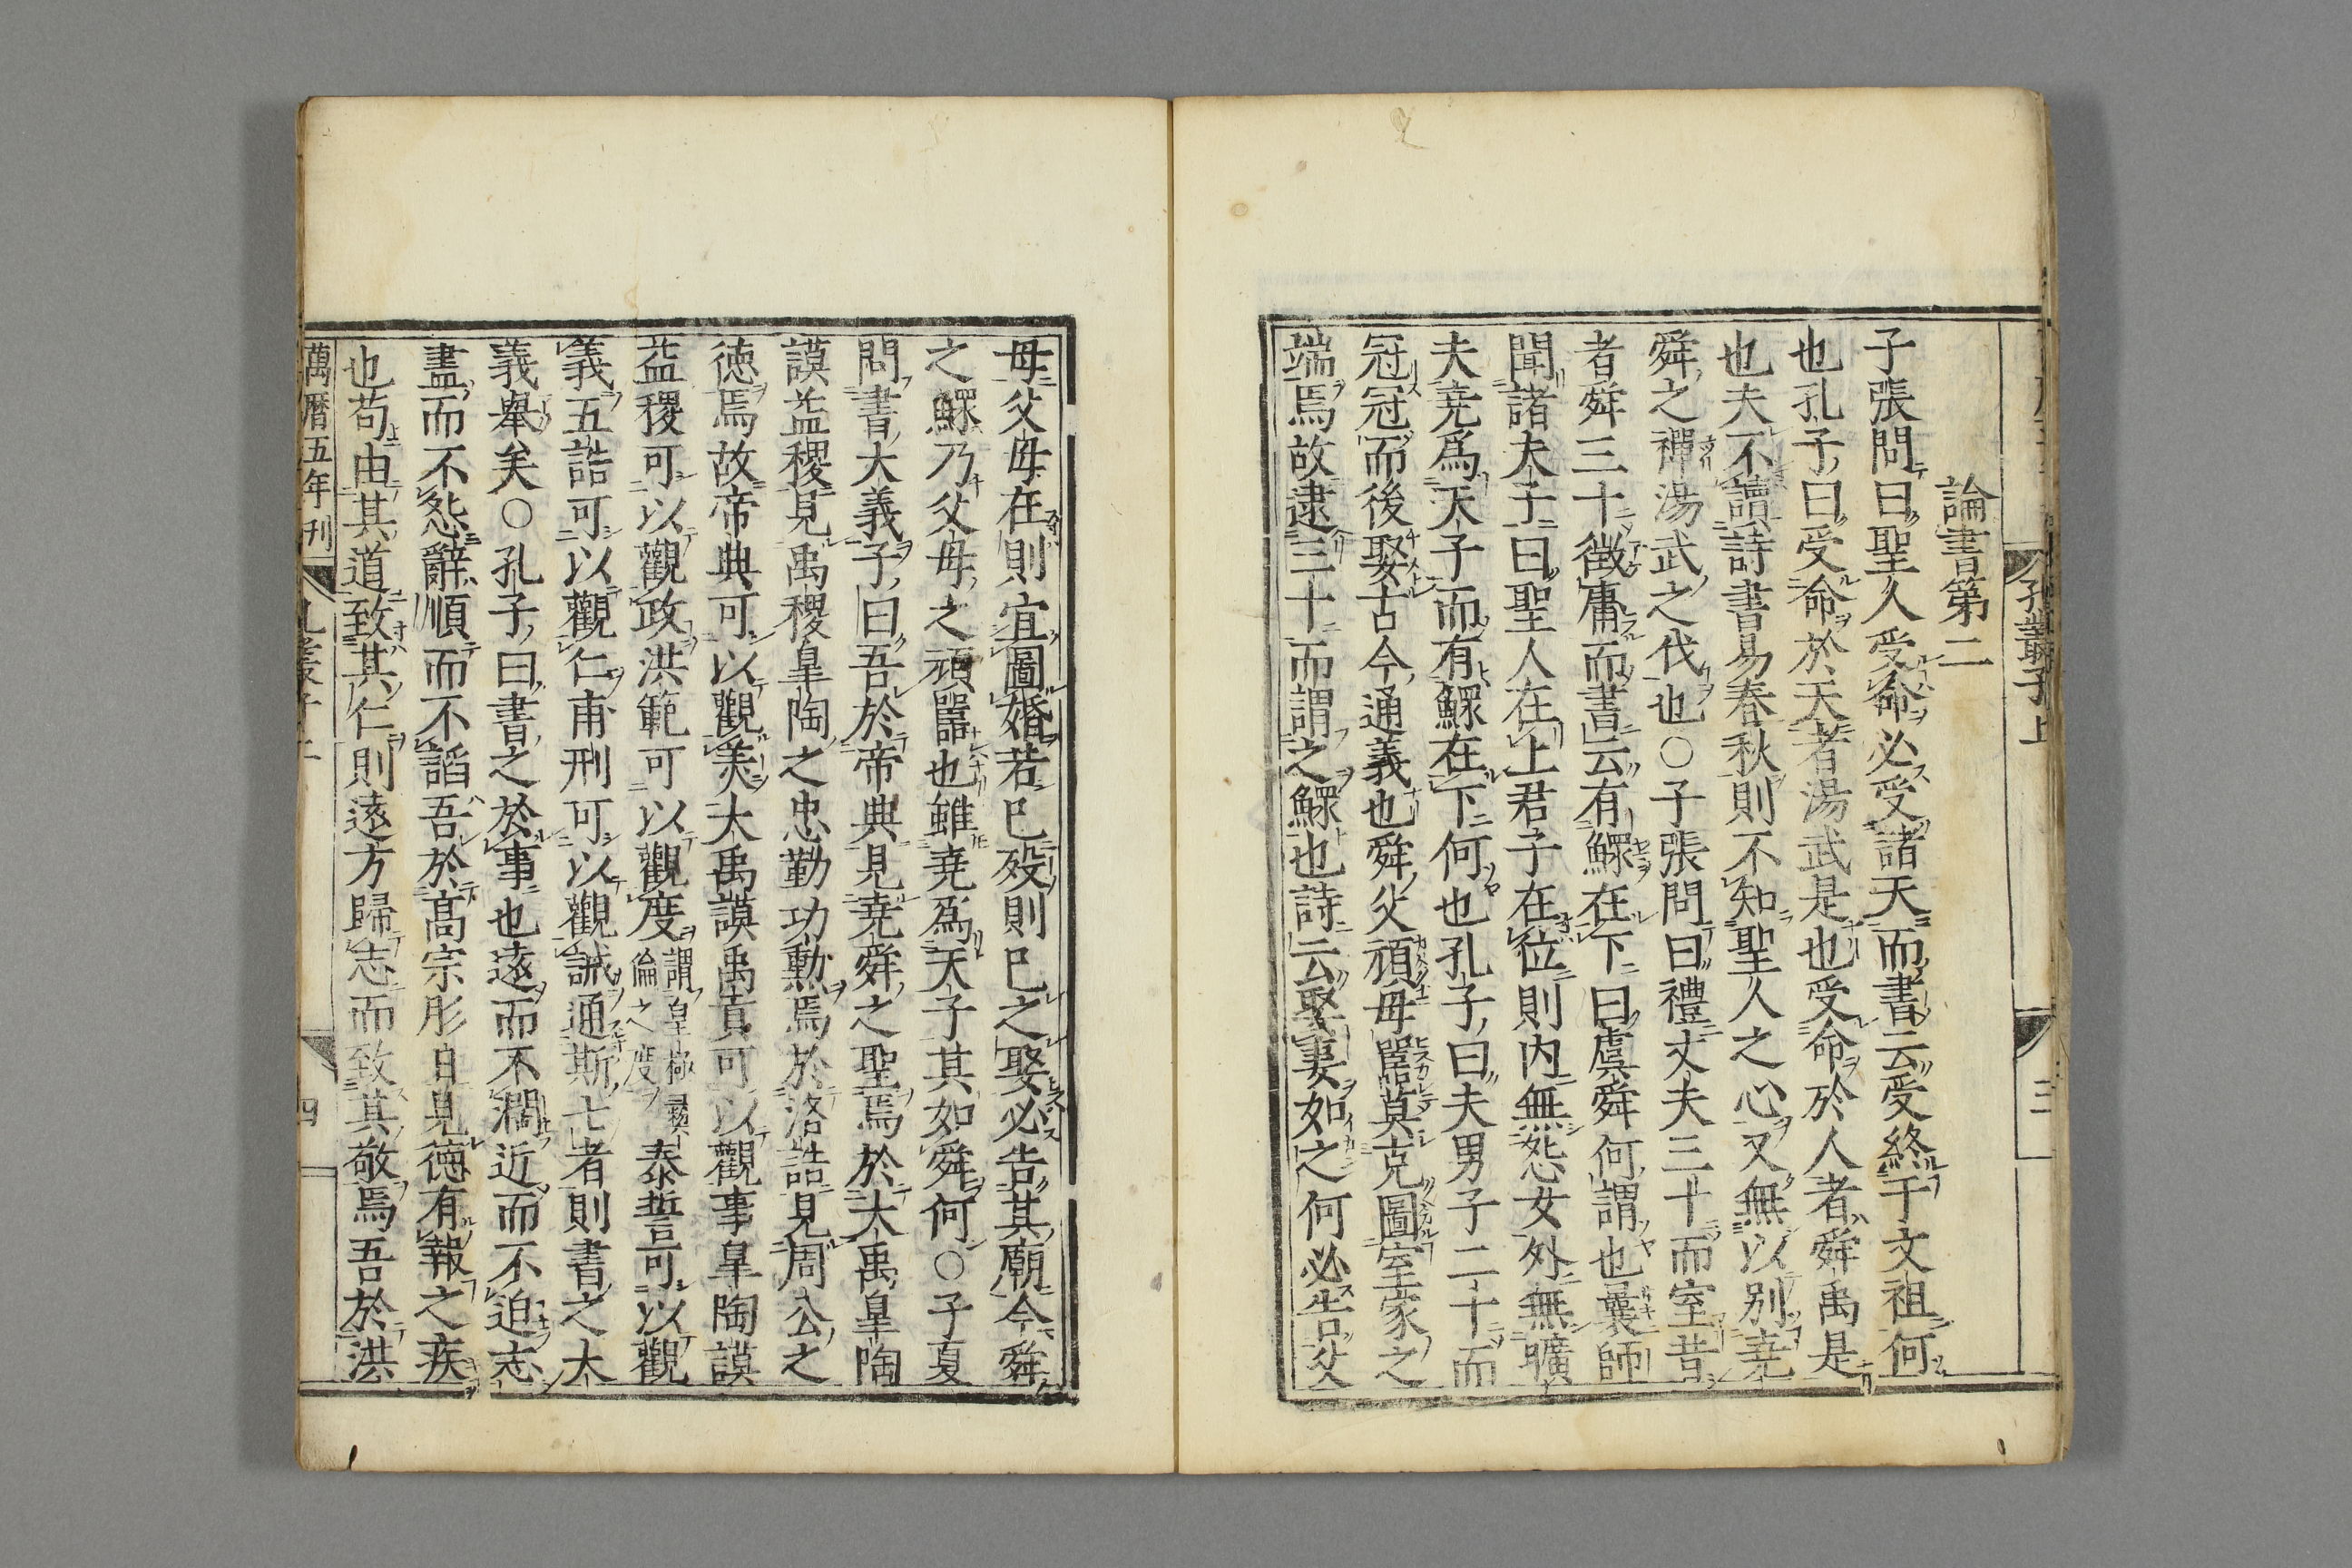 孔叢子上
三
論書第二
子張問曰聖人受命必受諸天而書云受終于文祖何
也孔子曰受命於天者湯武是也受命於人者舜禹是
也夫不讀詩書易春秋則不知聖人之心又無以別堯
舜之禪湯武之伐也○子張問曰禮丈夫三十而室昔
者舜三十徵庸而書云有鰥在下曰虞舜何謂也曩師
聞諸夫子曰聖人在上君子在位則内無怨女外無曠
夫堯爲天子而有鰥在下何也孔子曰夫男子二十而
冠冠而後娶古今通義也舜父頑母嚚莫克圖室家之
端焉故逮三十而謂之鰥也詩云娶妻如之何必告父
母父母在則宜圖婚若已殁則已之娶必告其廟今舜
之鰥乃父母之頑嚚也雖堯爲天子其如舜何○子夏
問書大義子曰吾於帝典見堯舜之聖焉於大禹皐陶
謨益稷見禹稷皐陶之忠勤功勲焉於洛誥見周公之
徳焉故帝典可以觀美大禹謨禹貢可以觀事皐陶謨
益稷可以觀政洪範可以觀度謂皇極彛倫之度泰誓可以觀
義五誥可以觀仁甫刑可以觀誡通斯七者則書之大
義舉矣○孔子曰書之於事也遠而不濶近而不迫志
盡而不怨辭順而不謟吾於髙宗肜日見徳有報之疾
也苟由其道致其仁則遠方歸志而致其敬焉吾於洪
萬暦五年刊
四